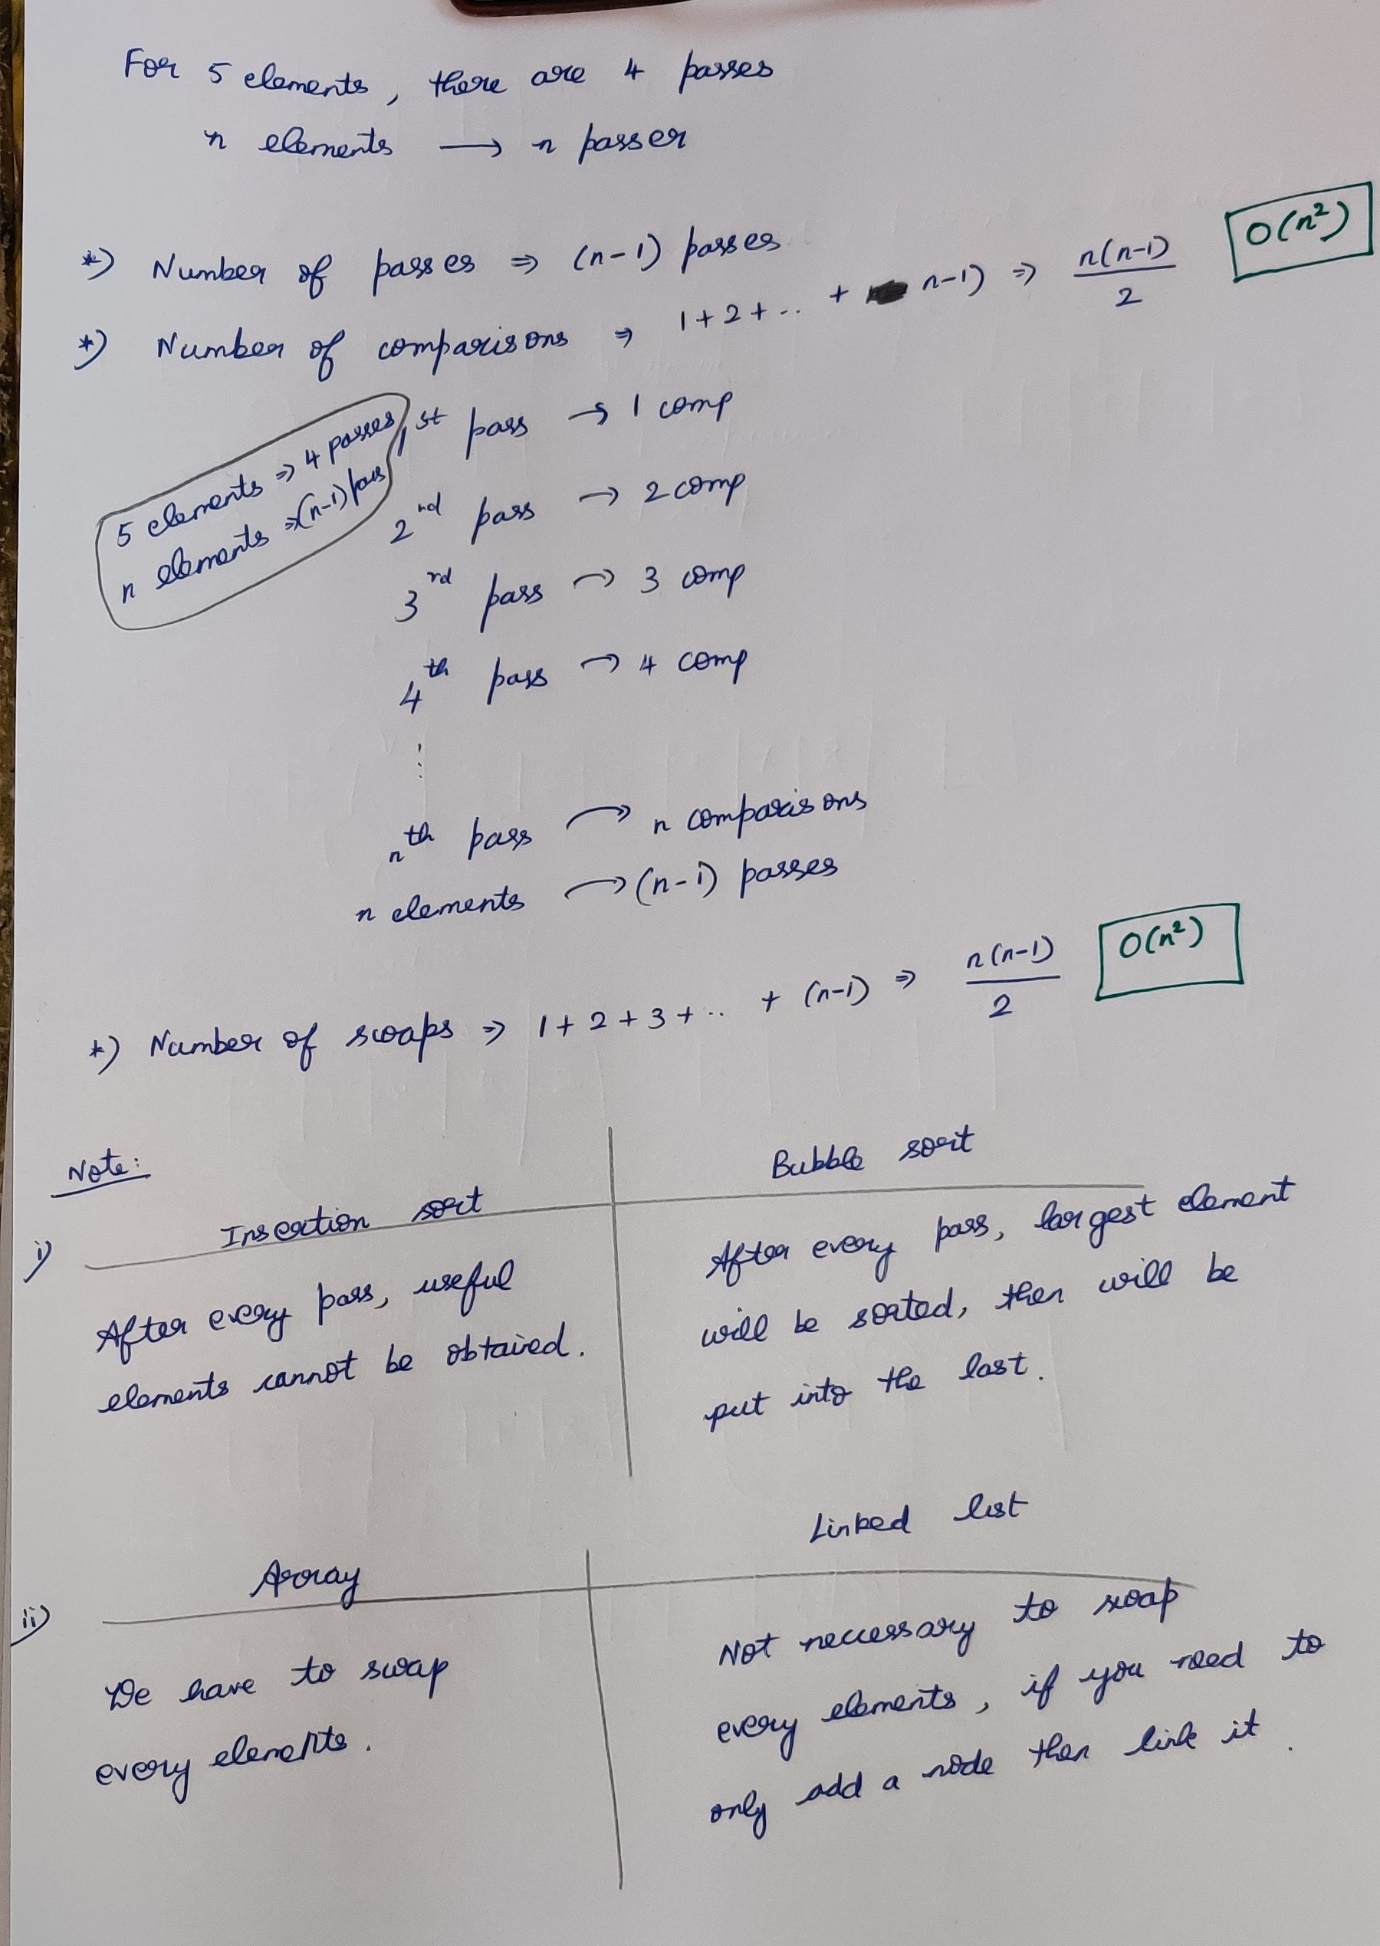 For 5 elements, there are 4 passes
n elements → n passes
*) Number of passes ⇒ (n-1) passes
*) Number of comparisons ⇒ 1+2+.. + n-1) ⇒ n(n-1)/2 O(n²)
5 elements ⇒ 4 passes
n elements ⇒ (n-1) pass
1st pass → 1 comp
2nd pass → 2 comp
3rd pass → 3 comp
4th pass → 4 comp
⋮
nth pass → n comparisons
n elements → (n-1) passes
*) Number of swaps ⇒ 1+2+3+.. + (n-1) ⇒ n(n-1)/2 O(n²)
Note:
i) Insertion sort
After every pass, useful
elements cannot be obtained.
Bubble sort
After every pass, largest element
will be sorted, then will be
put into the last.
ii) Array
We have to swap
every elements.
Linked list
Not neccessary to swap
every elements, if you need to
only add a node then link it.